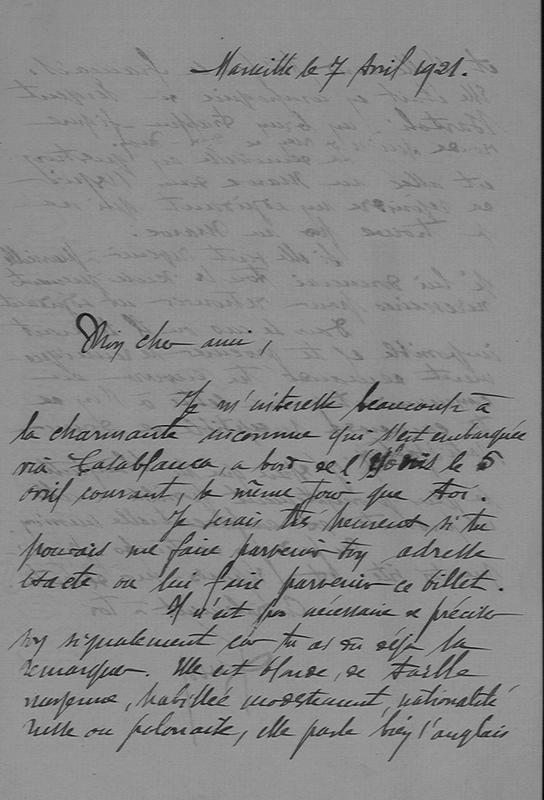 Marseille le 7 Avril 1921.
Mon cher ami,
Je m'interesse beaucoup à
la charmante inconnue qui s'est embarquée
via Casablanca, a bord de l' le 5
avril courant, le même jour que toi.
Je serais très heureux si tu
pouvais me faire parvenir son adresse
exacte ou lui faire parvenir ce billet.
Il n'est pas nécessaire de préciser
son signalement car tu as du déja la
remarquer. Elle est blonde, de taille
moyenne, habillée modestement, nationalité
russe ou polonaise, elle parle bien l'anglais